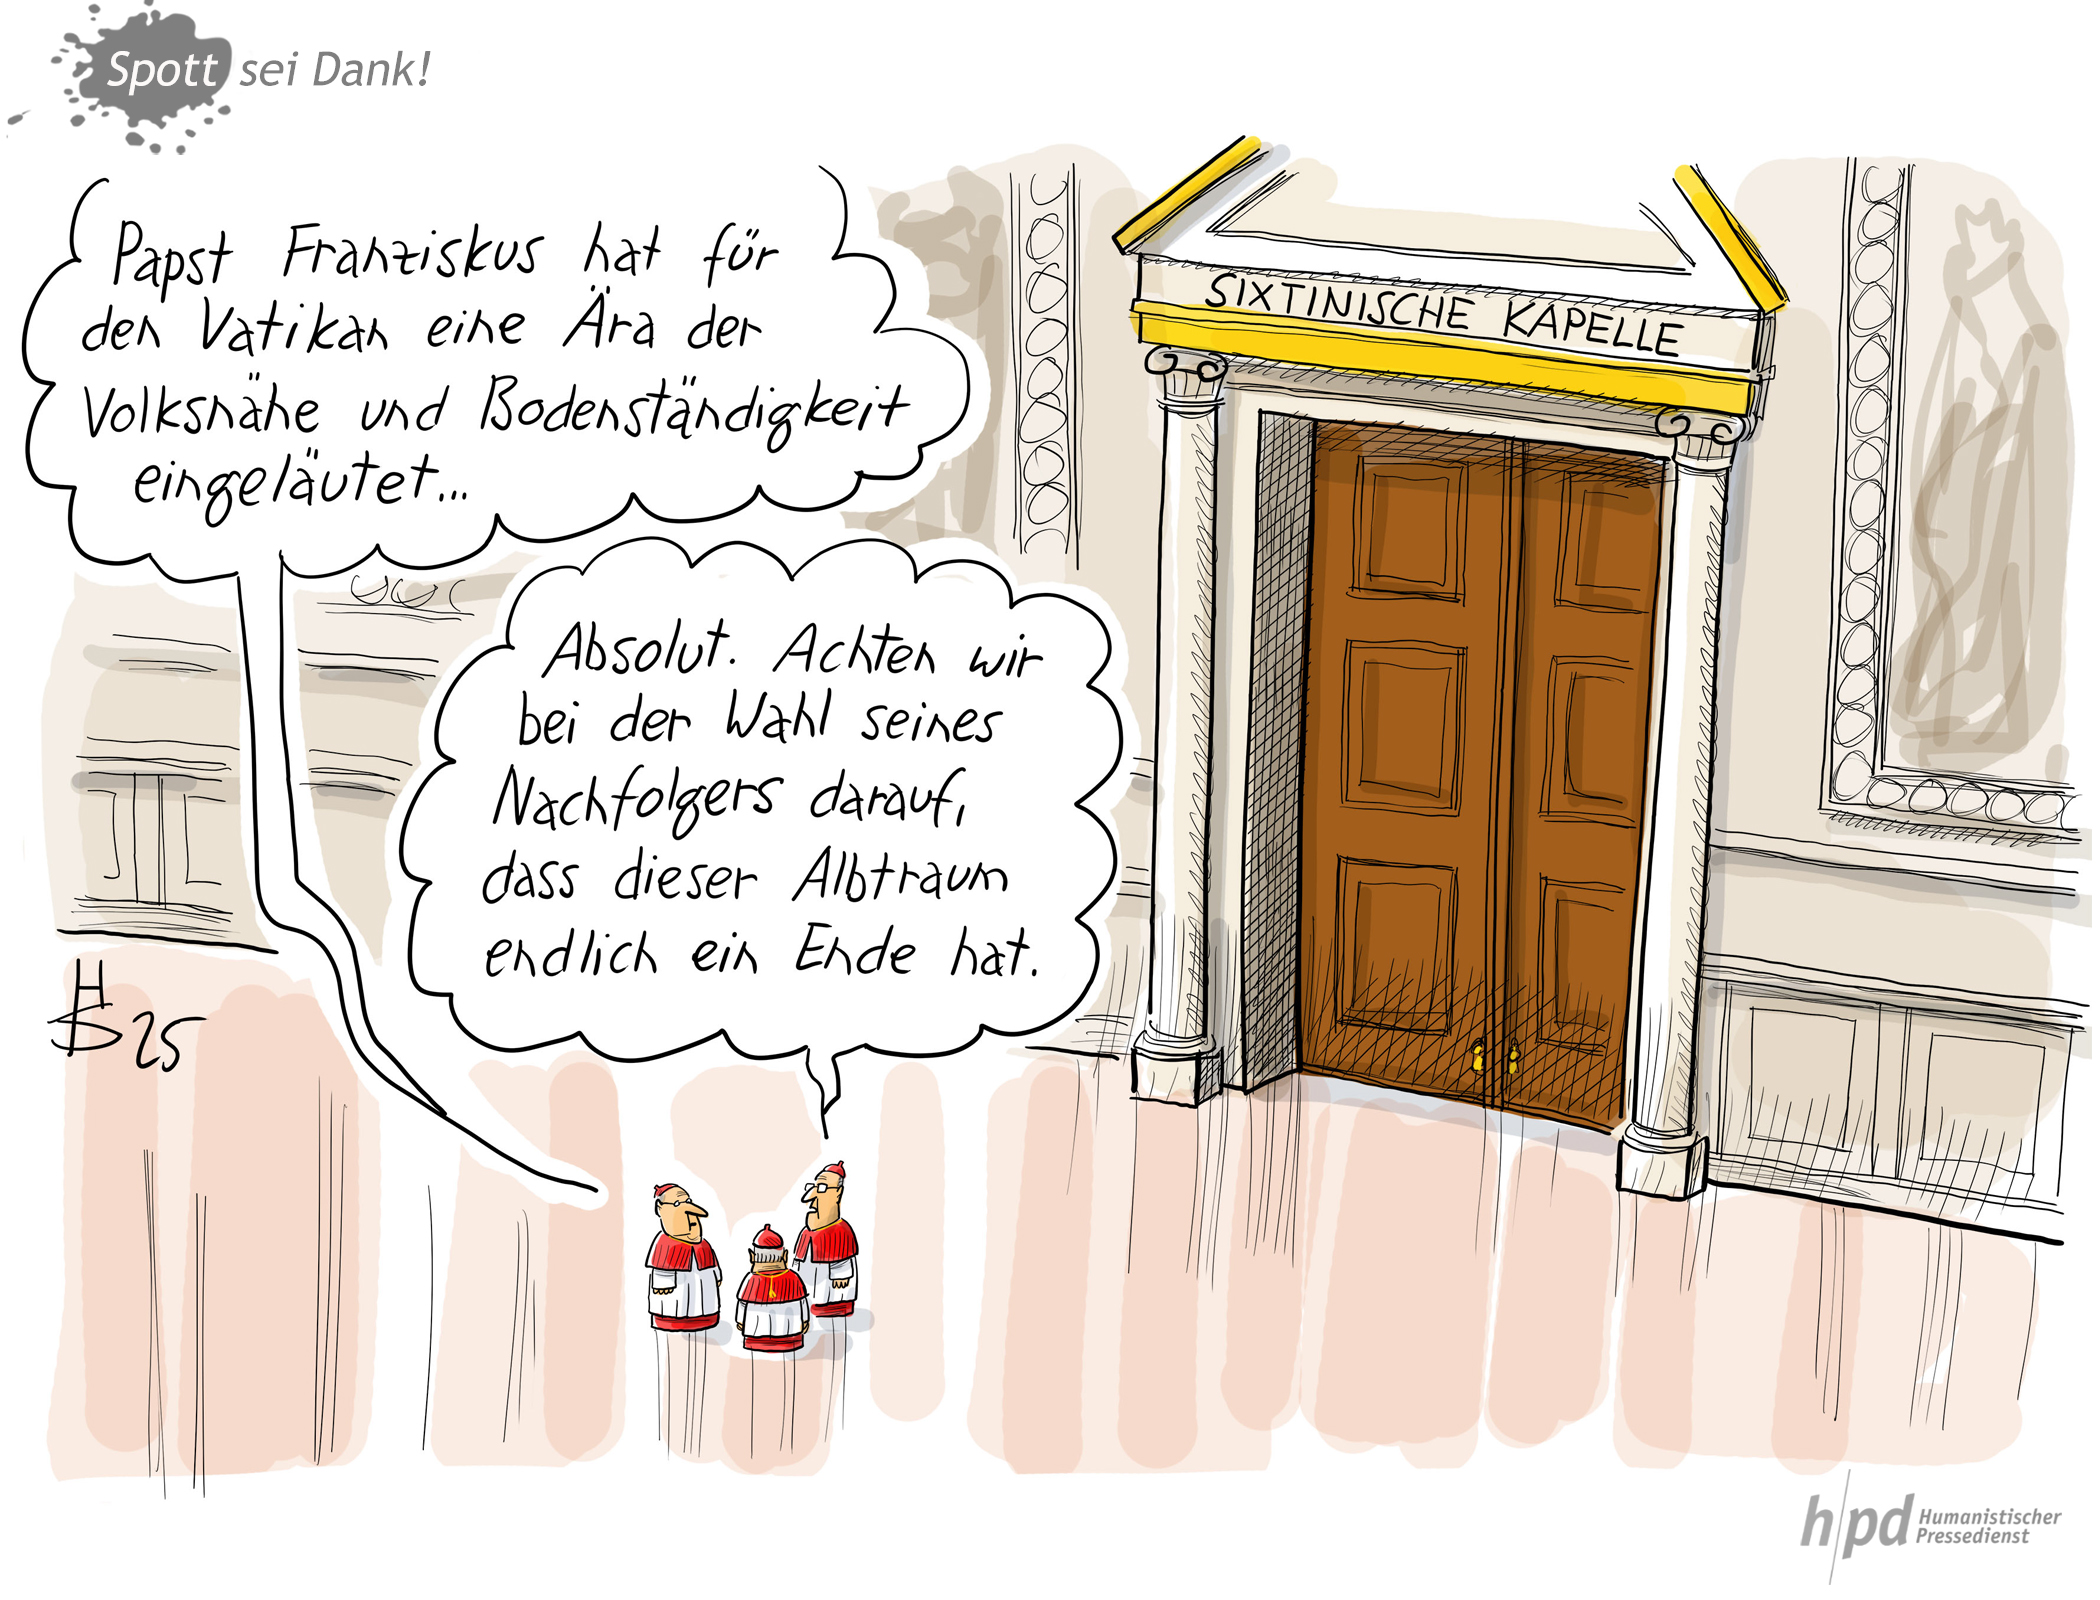 Spott sei Dank!
Papst Franziskus hat für
den Vatikan eine Ära der
Volksnähe und Bodenständigkeit
eingeläutet...
Absolut. Achten wir
bei der Wahl seines
Nachfolgers darauf,
dass dieser Albtraum
endlich ein Ende hat.
SIXTINISCHE KAPELLE
HS 25
h/pd Humanistischer
Pressedienst